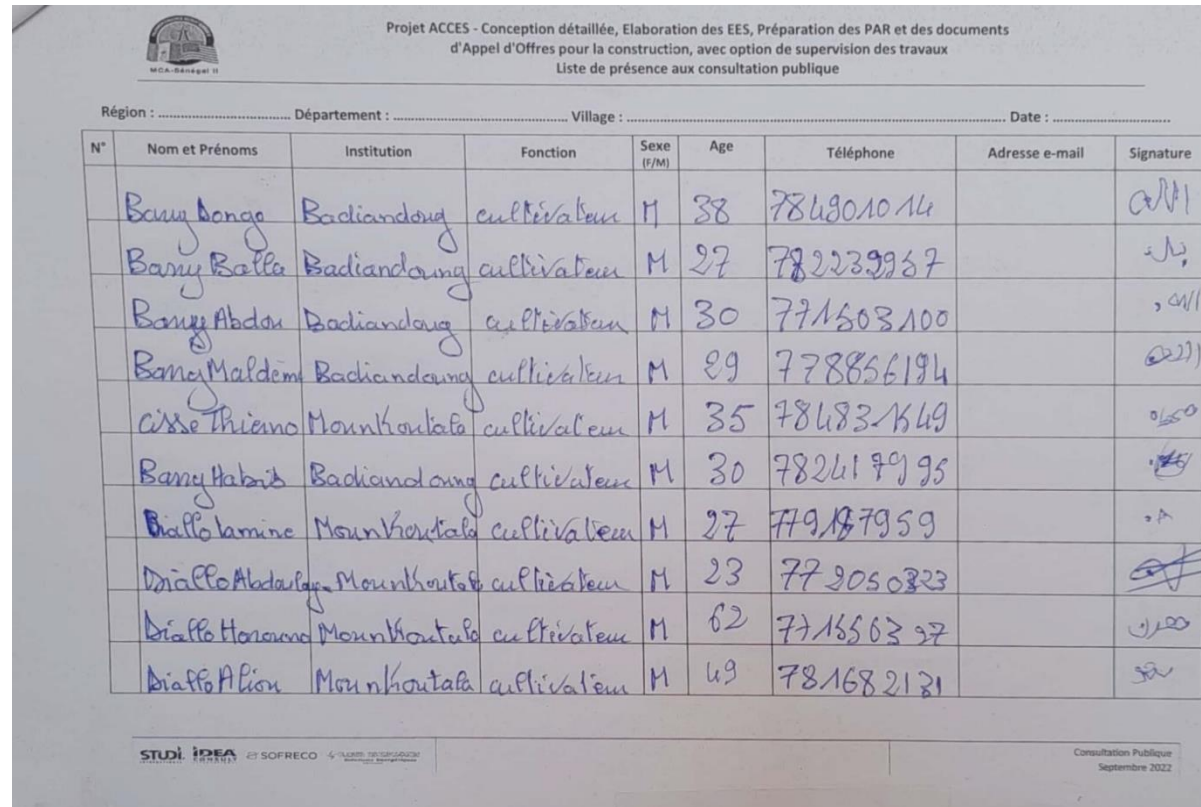 MCA-Sénégal II
Projet ACCES - Conception détaillée, Elaboration des EES, Préparation des PAR et des documents
d'Appel d'Offres pour la construction, avec option de supervision des travaux
Liste de présence aux consultation publique
Région : ................................. Département : ........................................... Village : ............................................................................................... Date : .............................
N° Nom et Prénoms Institution Fonction Sexe (F/M) Age Téléphone Adresse e-mail Signature
Barry Dongo Badiandoug cultivateur M 38 784901014
Barry Balla Badiandoung cultivateur M 27 782239967
Barry Abdou Badiandoug cultivateur M 30 771503100
Barry Maldem Badiandoung cultivateur M 29 778856194
Cisse Thierno Mounkoutafa cultivateur M 35
Barry Badiandoung cultivateur M 30 782417995
Diallo lamine Mounkoutala cultivateur M 27 779187959
Diallo Mounkoutala cultivateur M 23 779050323
Diallo Mounkoutala cultivateur M 62 771556397
Diallo Aliou Mounkoutala cultivateur M 49 781682131
STUDI IDEA CONSULT SOFRECO
Consultation Publique
Septembre 2022